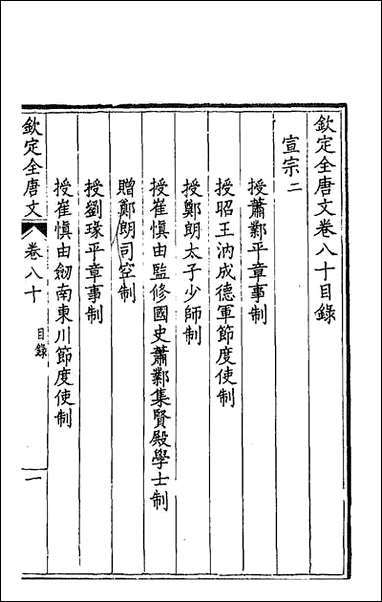 欽定全唐文卷八十目錄
宣宗二
授蕭鄴平章事制
授昭王汭成德軍節度使制
授鄭朗太子少師制
授崔慎由監修國史蕭鄴集賢殿學士制
贈鄭朗司空制
授劉瑑平章事制
授崔慎由劒南東川節度使制
欽定全唐文
卷八十
目錄
一